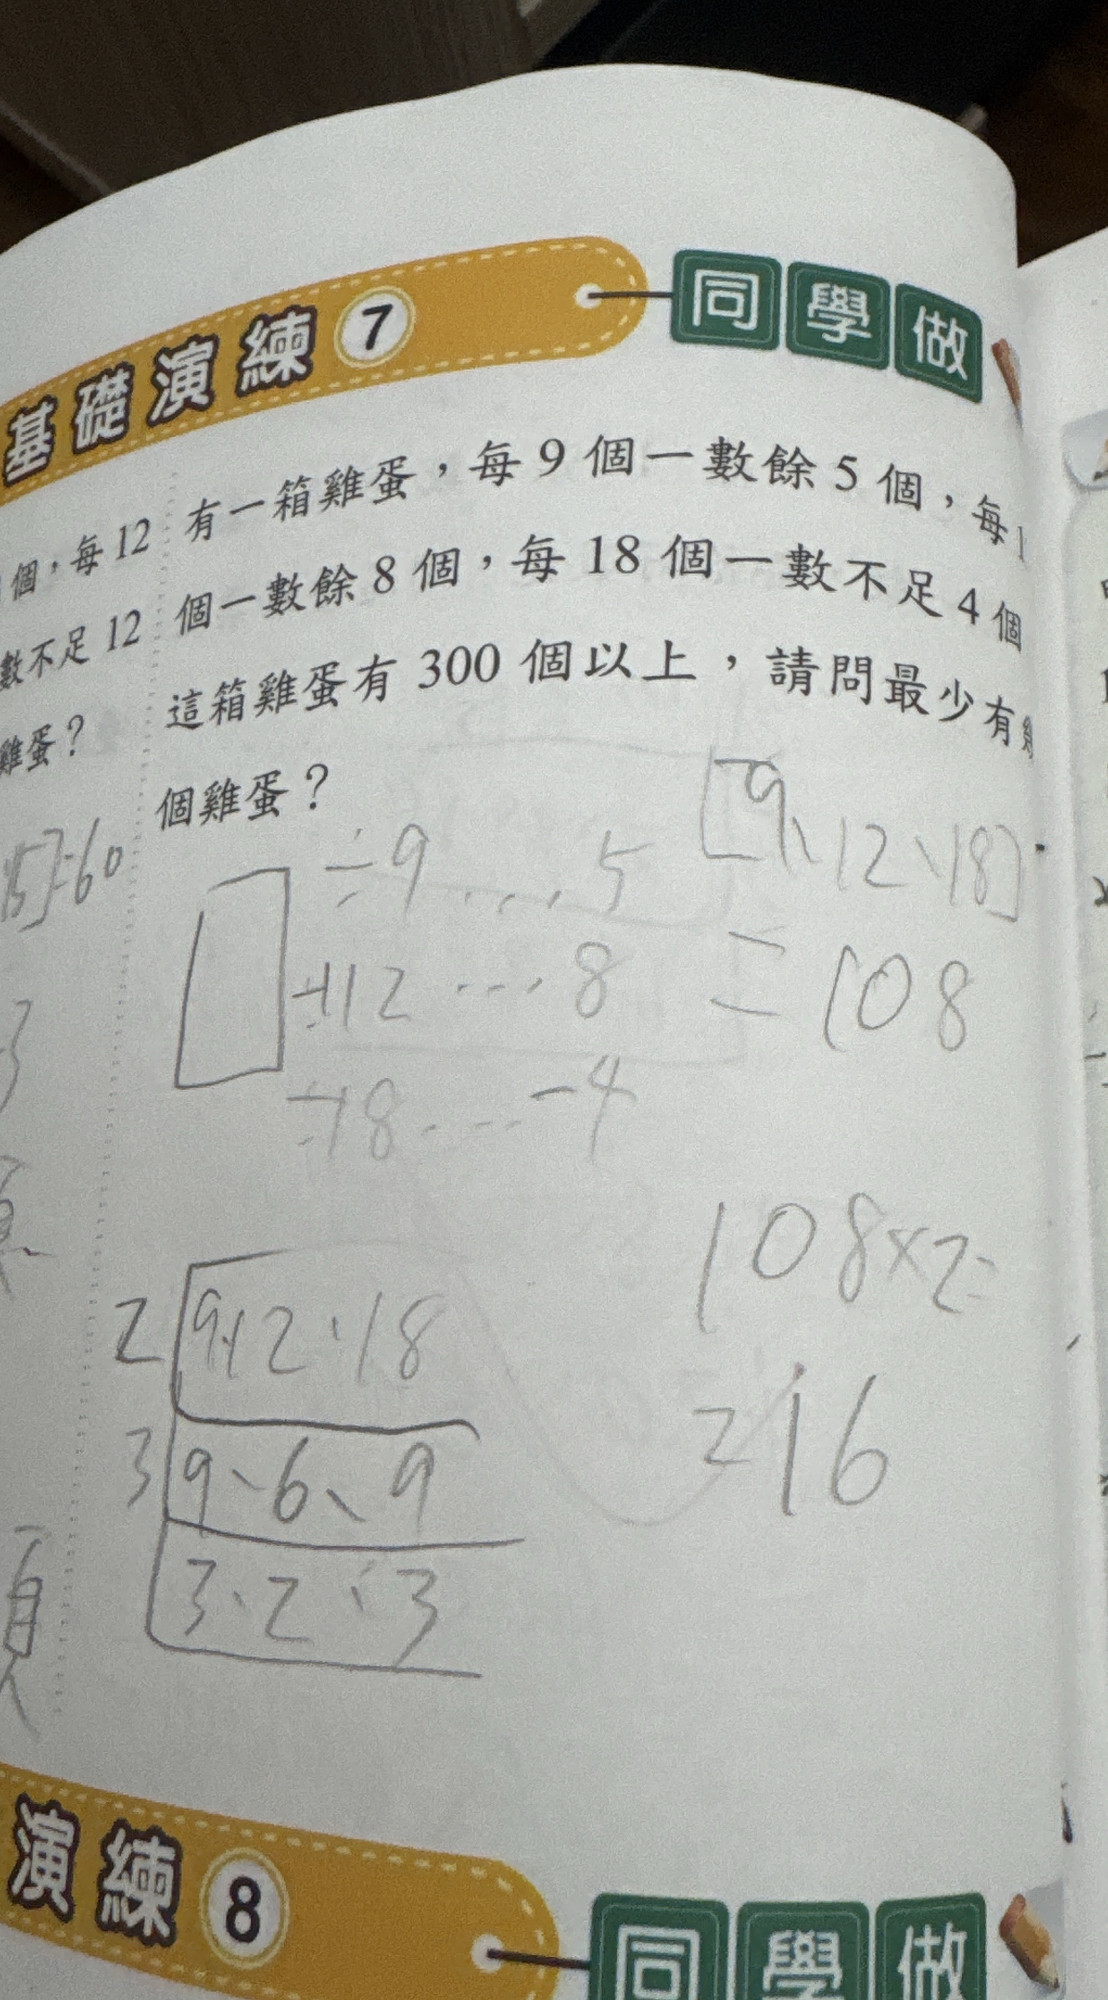 基礎演練 7 同學做
個，每12
數不足12
雞蛋？
15]=60
有一箱雞蛋，每9個一數餘5個，每1
個一數餘8個，每18個一數不足4個
這箱雞蛋有300個以上，請問最少有幾
個雞蛋？
÷9……5
÷12…8
÷18…-4
[9、12、18]
=108
108×2=
=16
2 9、12、18
3 9、6、9
3、2、3
演練 8 同學做